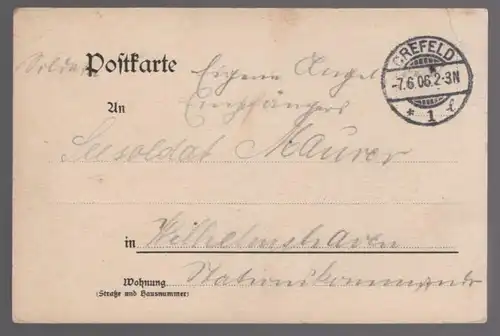 Postkarte
Eigene Angel.
Empfängers
CREFELD
-7.6.06.2-3N
* 1 f
An
Seesoldat Maurer
in Wilhelmshaven
Wohnung
(Straße und Hausnummer)